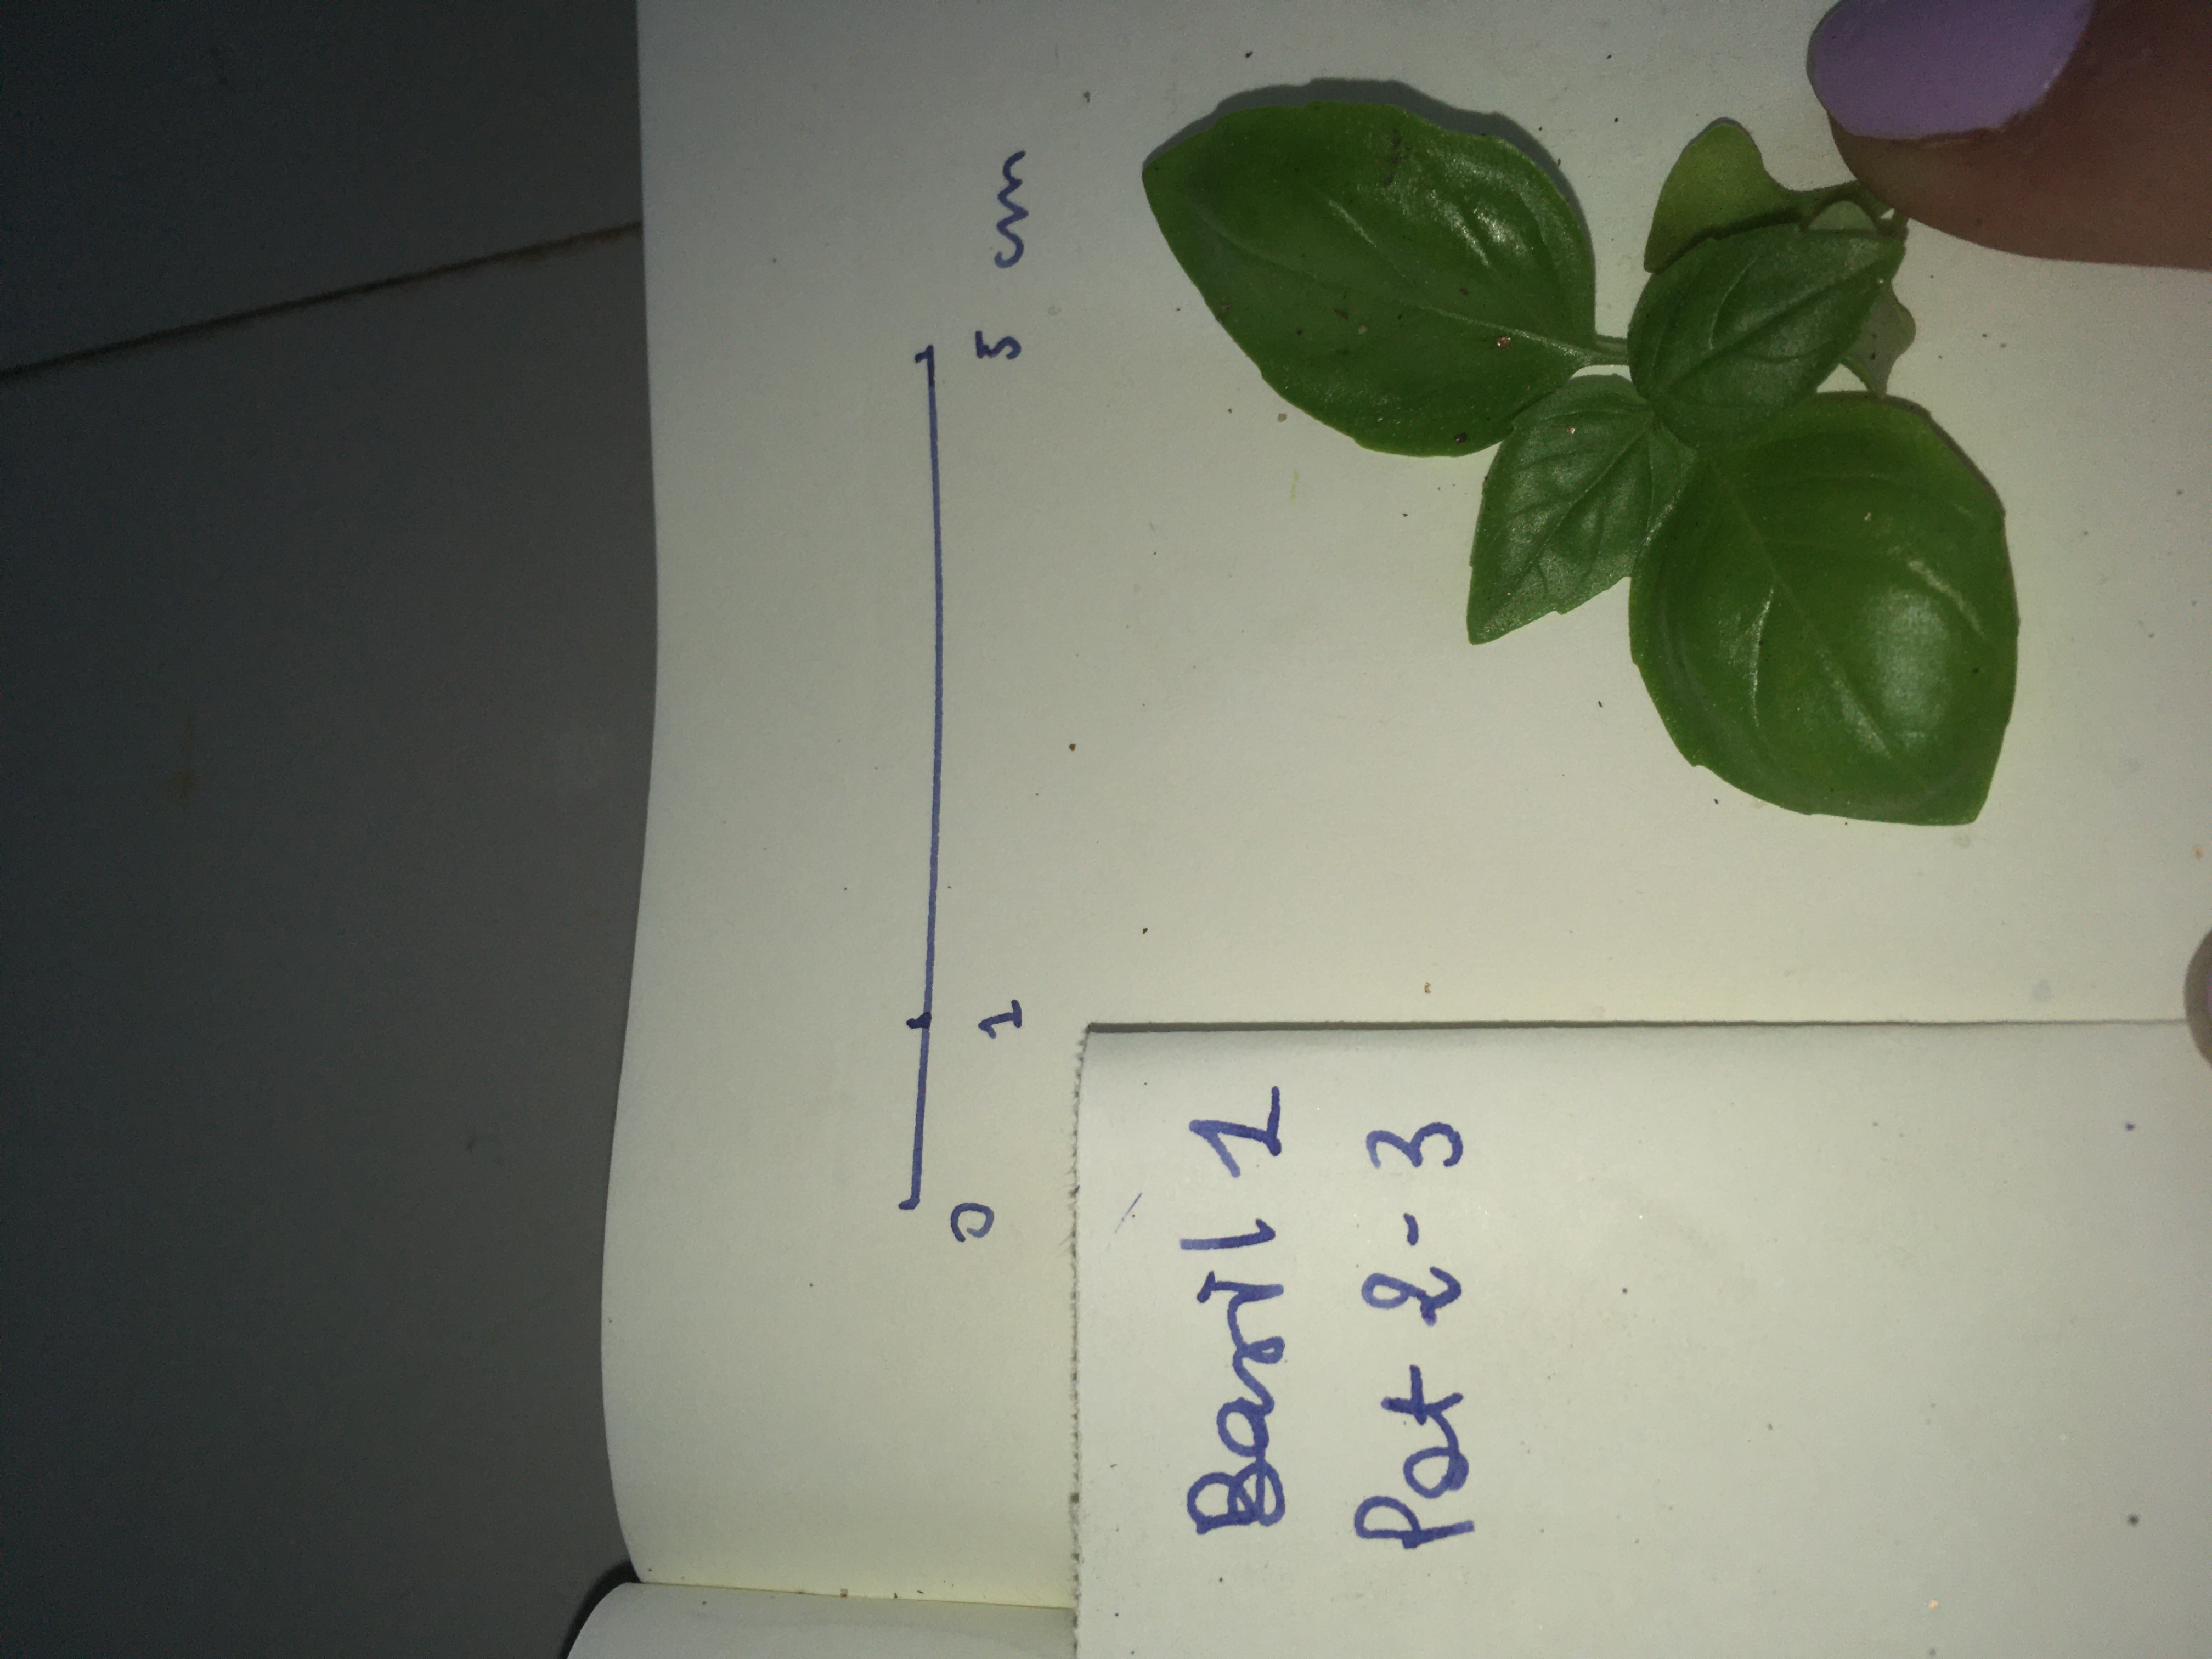 0 1 5 cm
Basil 1
Pot 2-3